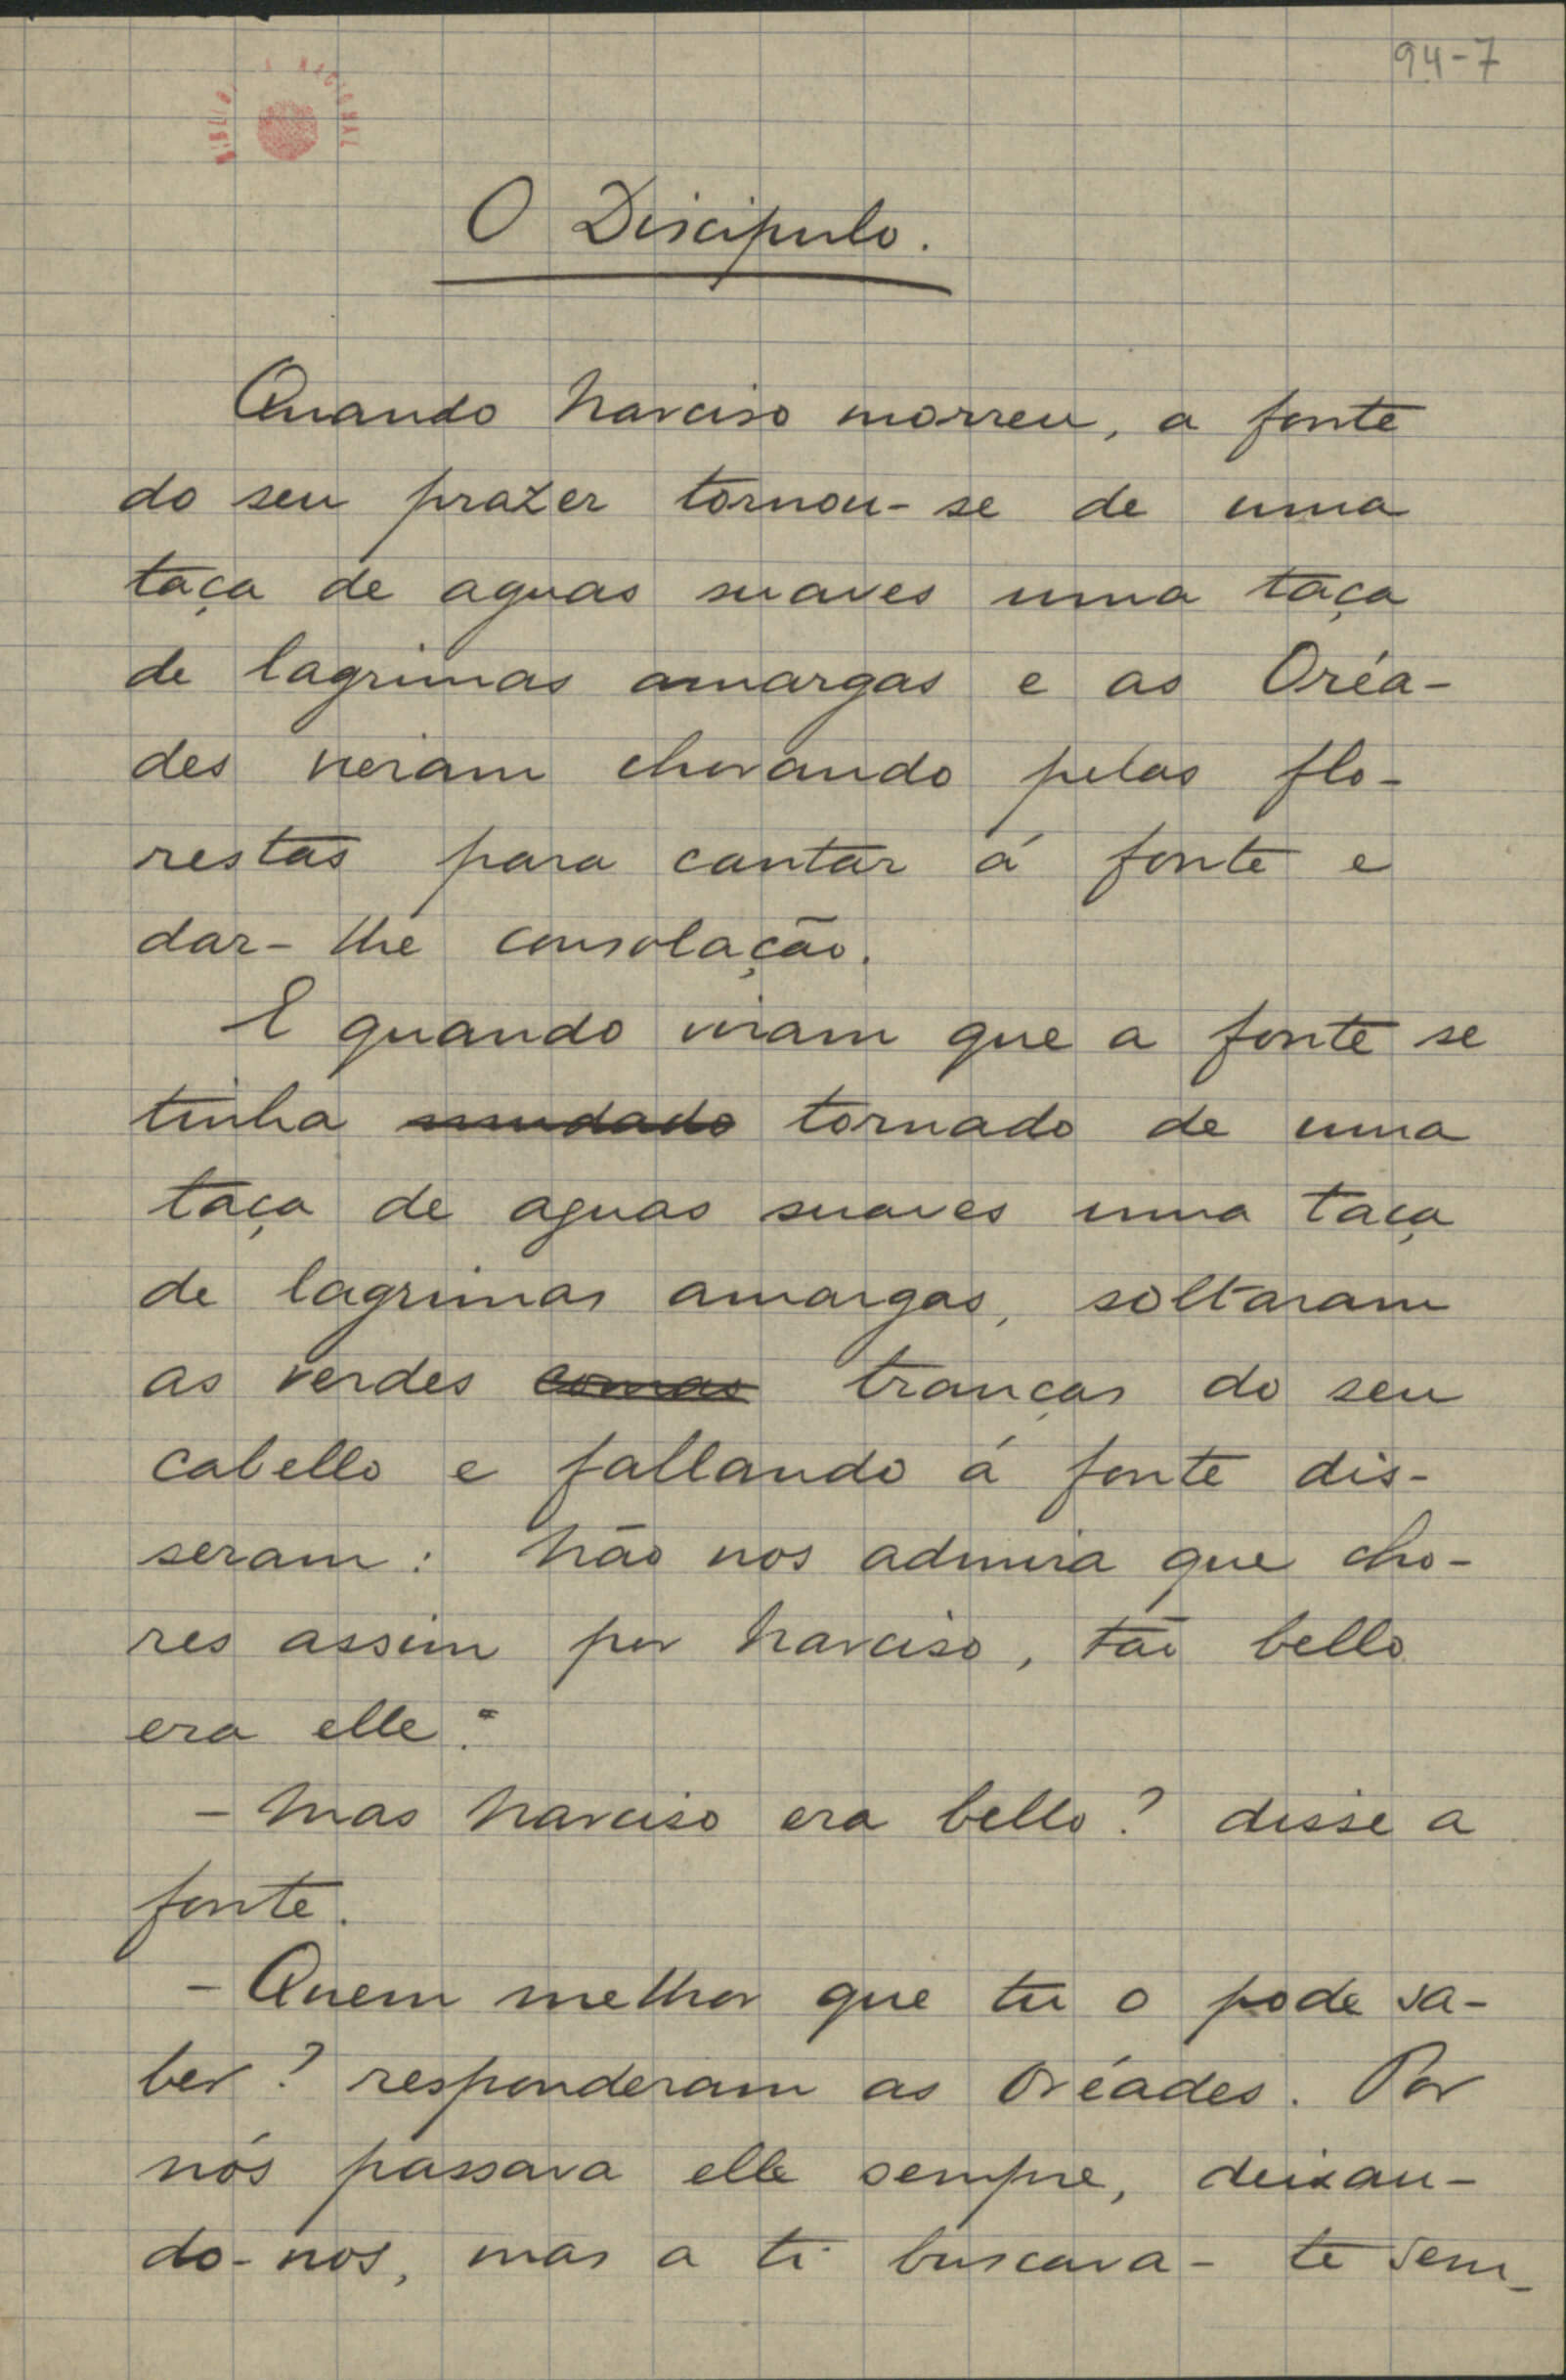 94-7
O Discipulo.
Quando Narciso morreu, a fonte
do seu prazer tornou-se de uma
taça de aguas suaves uma taça
de lagrimas amargas e as Oréa-
des vieram chorando pelas flo-
restas para cantar á fonte e
dar-lhe consolação.
E quando viram que a fonte se
tinha mudado tornado de uma
taça de aguas suaves uma taça
de lagrimas amargas, soltaram
as verdes comas tranças do seu
cabello e fallando á fonte dis-
seram: Não nos admira que cho-
res assim por Narciso, tão bello
era elle."
- Mas Narciso era bello? disse a
fonte.
- Quem melhor que tu o pode sa-
ber? responderam as Oréades. Por
nós passava elle sempre, deixan-
do-nos, mas a ti buscava-te sem-